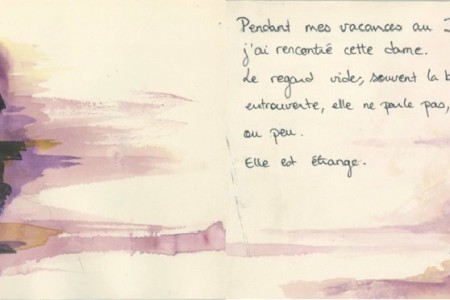 Pendant mes vacances au
j'ai rencontré cette dame.
Le regard vide, souvent la
entrouverte, elle ne parle pas,
ou peu.
Elle est étrange.